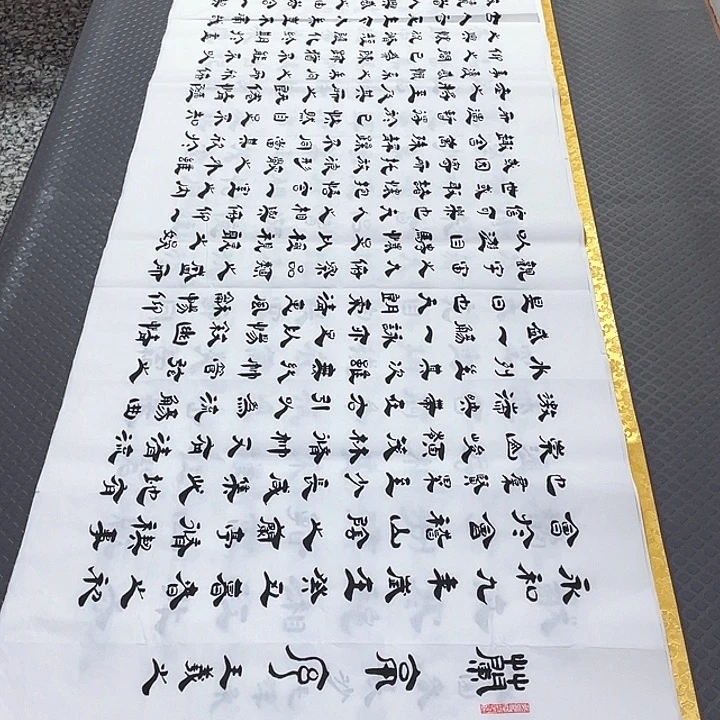 蘭亭序 王羲之
永和九年歲在癸丑暮春之初
會於會稽山陰之蘭亭脩禊事
也羣賢畢至少長咸集此地有
崇山峻領茂林脩竹又有清流
激湍映帶左右引以為流觴曲
水列坐其次雖無絲竹管弦之
盛一觴一詠亦足以暢敘幽情
是日也天朗氣清惠風和暢仰
觀宇宙之大俯察品類之盛所
以遊目騁懷足以極視聽之娛
信可樂也夫人之相與俯仰一
世或取諸懷抱悟言一室之內
或因寄所託放浪形骸之外雖
趣舍萬殊靜躁不同當其欣於
所遇暫得於己快然自足不知
老之將至及其所之既倦情隨
事遷感慨係之矣向之所欣俛
仰之間已為陳迹猶不能不以